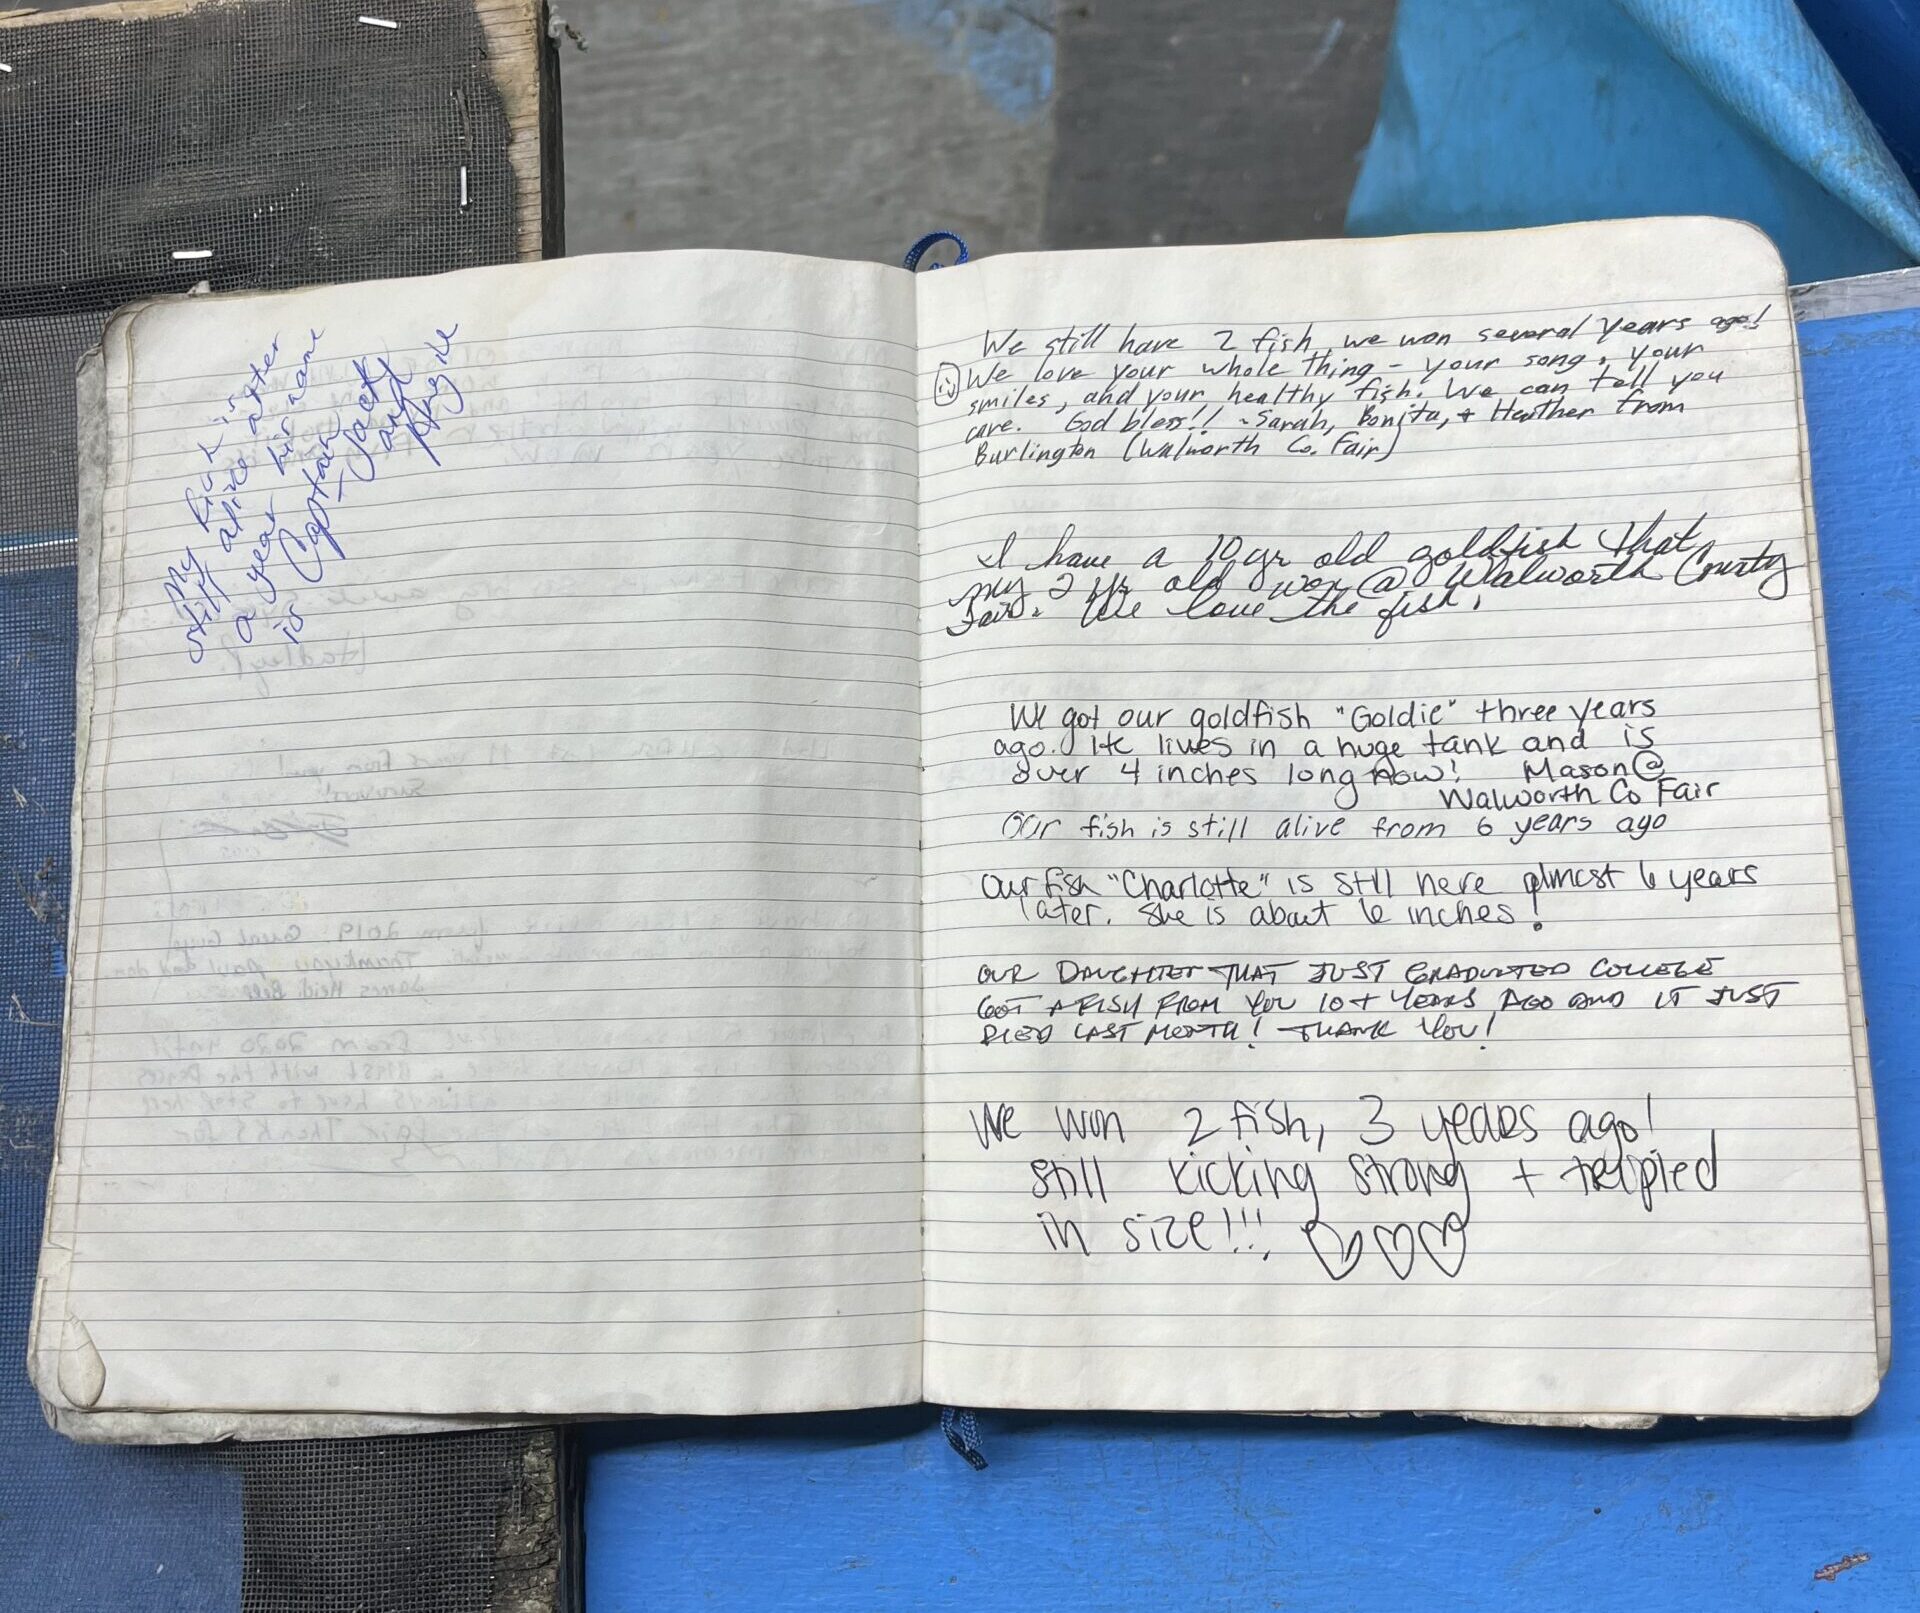 My fish is
still alive after
a year his name
is Captain
Jack
and
We still have 2 fish we won several years ago!
We love your whole thing - your song, your
smiles, and your healthy fish. We can tell you
care. God bless!! ~Sarah, Bonita, + Heather from
Burlington (Walworth Co. Fair)
I have a 10 yr old goldfish that
my 2 yr old won @ Walworth County
Fair. We love the fish.
We got our goldfish "Goldie" three years
ago. He lives in a huge tank and is
over 4 inches long now! Mason @
Walworth Co Fair
Our fish is still alive from 6 years ago
Our fish "Charlotte" is still here almost 6 years
later. She is about 6 inches!
OUR DAUGHTER THAT JUST GRADUATED COLLEGE
GOT A FISH FROM YOU 10+ YEARS AGO AND IT JUST
DIED LAST MONTH! THANK YOU!
We won 2 fish, 3 years ago!
still kicking strong + trippled
in size!!!